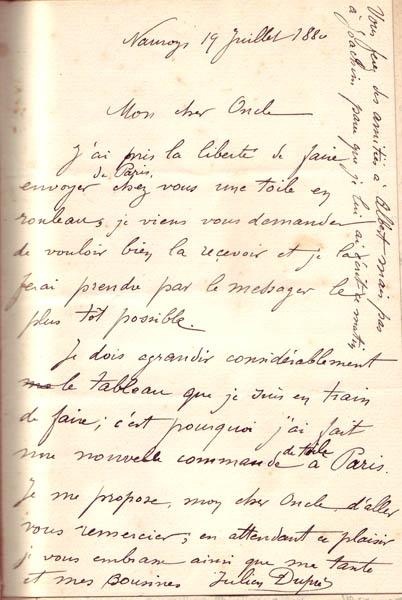 Nauroy 19 Juillet 1880
Mon cher Oncle
J'ai pris la liberté de faire
de Paris
envoyer chez vous une toile en
rouleau, je viens vous demander
de vouloir bien la recevoir et je la
ferai prendre par le messager le
plus tôt possible.
Je dois agrandir considérablement
le tableau que je suis en train
de faire; c'est pourquoi j'ai fait
de toile
une nouvelle commande à Paris.
Je me propose, mon cher Oncle d'aller
vous remercier; en attendant ce plaisir
je vous embrasse ainsi que ma tante
et mes cousines Julien Dupré
Vous ferez des amitiés à Albert mais pas
à Joachim parce que je lui ai écrit ce matin